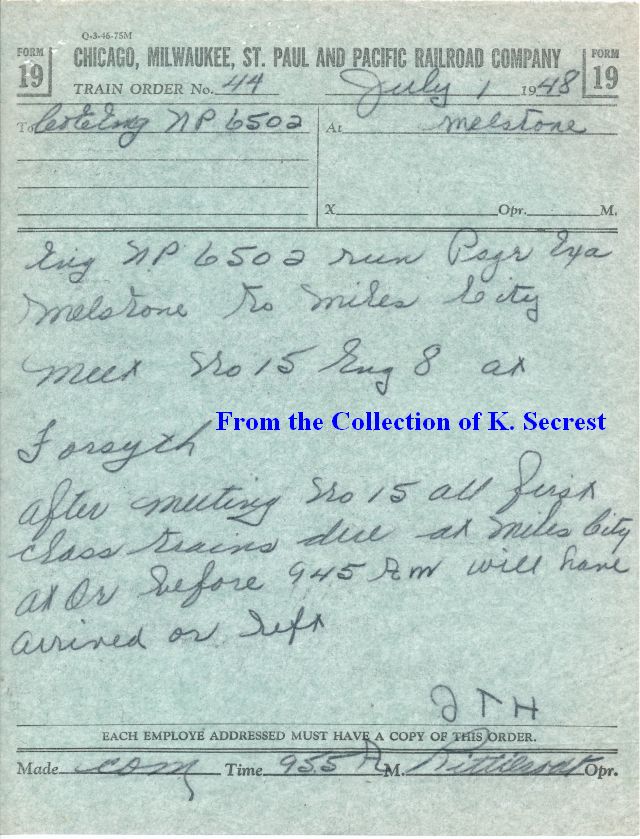 Q-3-46-75M
FORM 19 CHICAGO, MILWAUKEE, ST. PAUL AND PACIFIC RAILROAD COMPANY FORM 19
TRAIN ORDER No. 44 July 1 1948
To C&E Eng NP 6502 At Melstone
X Opr. M.
Eng NP 6502 run Psgr Exa
Melstone to Miles City
meet No 15 Eng 8 at
From the Collection of K. Secrest
Forsyth
after meeting No 15 all first
class trains due at Miles City
at Or before 945 Am will have
arrived or left
JTH
EACH EMPLOYE ADDRESSED MUST HAVE A COPY OF THIS ORDER.
Made com Time 955 A M. Opr.